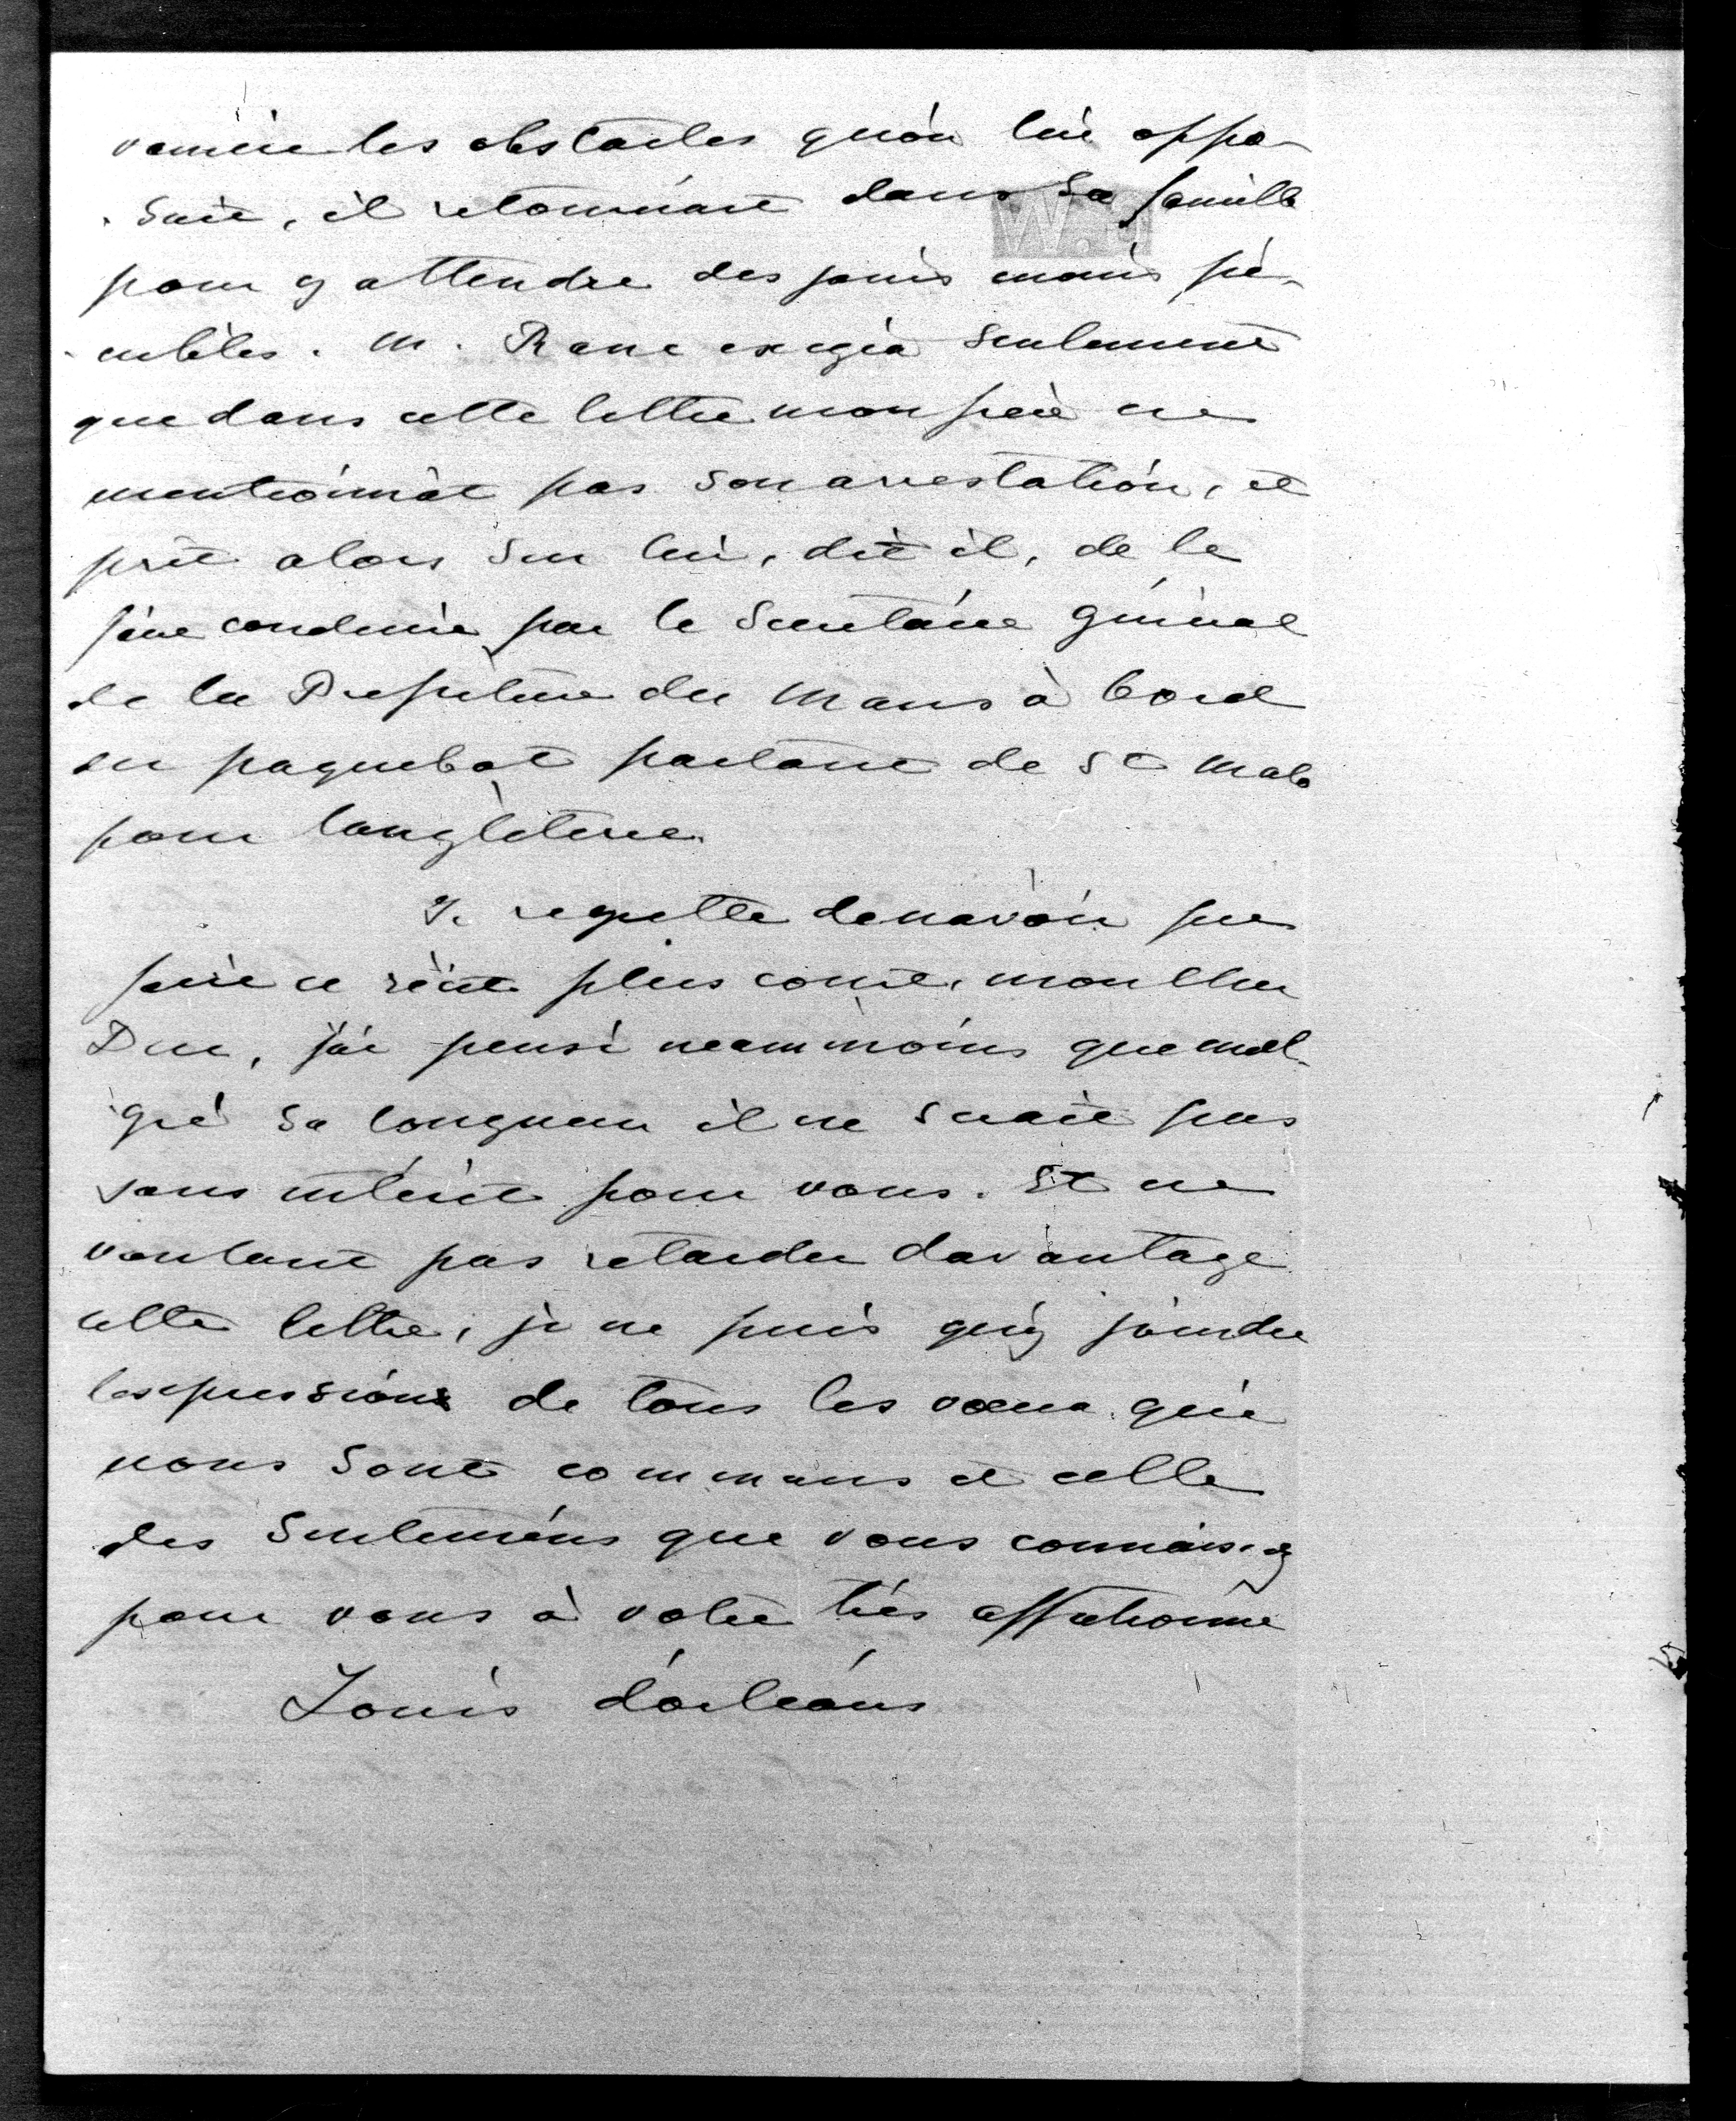 vaincre les obstacles qu'on lui oppo-
-sait, il retournait dans sa famille
pour y attendre des jours moins pé-
-nibles. M. Ranc exigea seulement
que dans cette lettre mon père ne
mentionnât pas son arrestation, et
prit alors sur lui, dit il, de le
faire conduire par le Secrétaire général
de la Préfecture du Mans à bord
du paquebot partant de St Malo
pour l'angleterre.
Je regrette de n'avoir pu
faire ce récit plus court, mon cher
Duc, j'ai pensé neammoins que mal-
gré sa longueur il ne serait pas
sans intérêt pour vous. Et ne
voulant pas retarder davantage
cette lettre, je ne puis qu'y joindre
l'expression de tous les voeux qui
nous sont communs et celle
des sentiments que vous connaissez
pour vous à votre très affectionné
Louis d'orléans